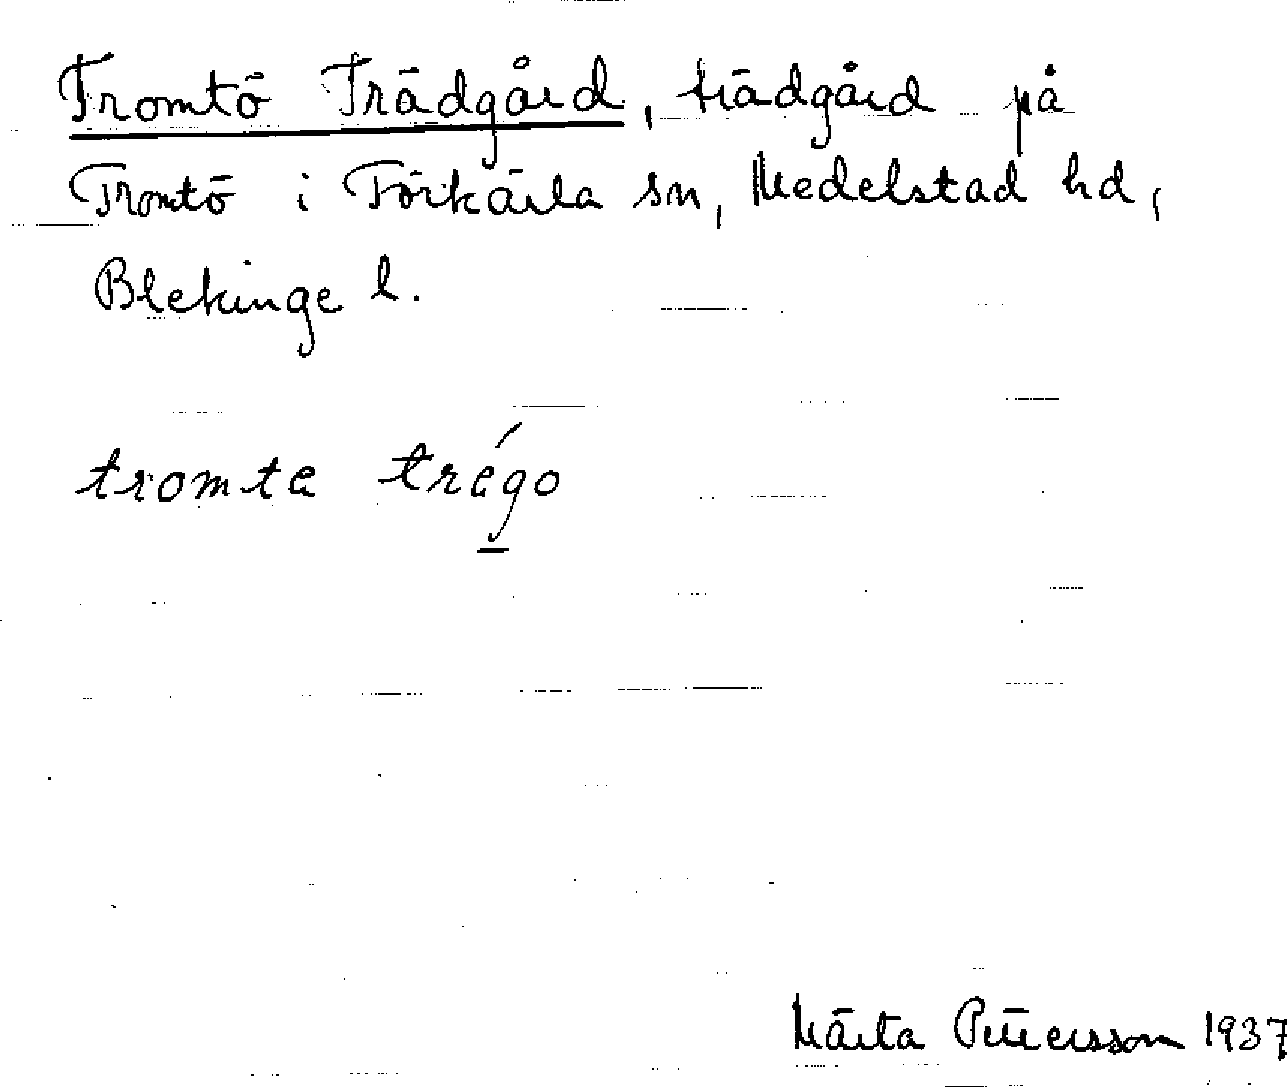 Tromtö Trädgård, trädgård på
Tromtö i Förkärla sn, Medelstad hd,
Blekinge l.
tromta trégo
Märta Petersson 1937